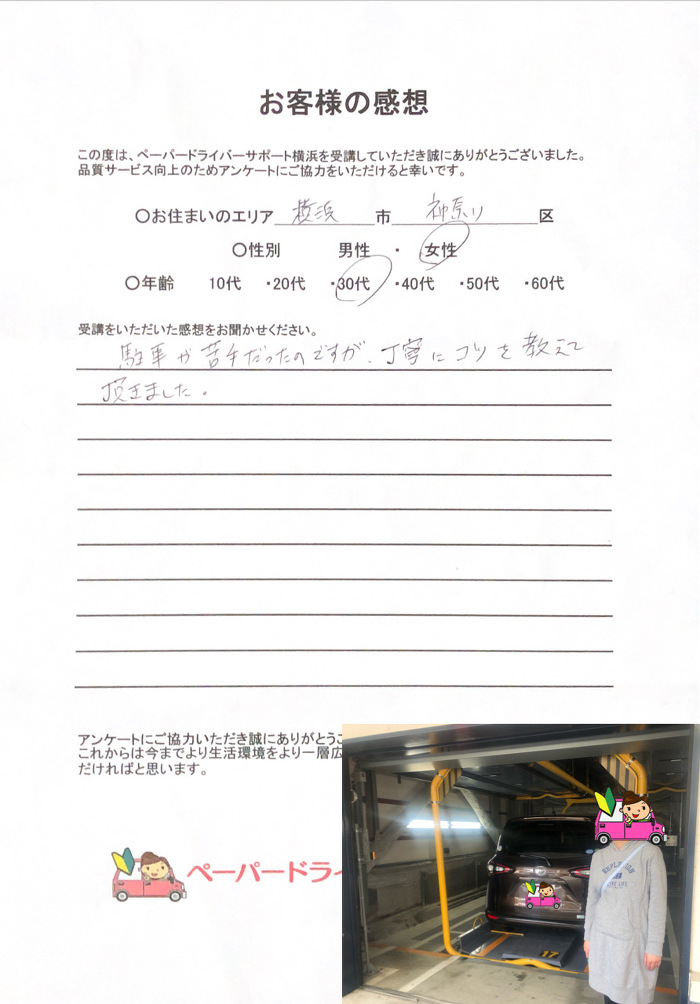 お客様の感想
この度は、ペーパードライバーサポート横浜を受講していただき誠にありがとうございました。
品質サービス向上のためアンケートにご協力をいただけると幸いです。
〇お住まいのエリア 横浜 市 神奈川 区
〇性別 男性 ・ 女性
〇年齢 10代 ・20代 ・30代 ・40代 ・50代 ・60代
受講をいただいた感想をお聞かせください。
駐車が苦手だったのですが、丁寧にコツを教えて
頂きました。
アンケートにご協力いただき誠にありがとうご
これからは今までより生活環境をより一層広
だければと思います。
ペーパードライ
17